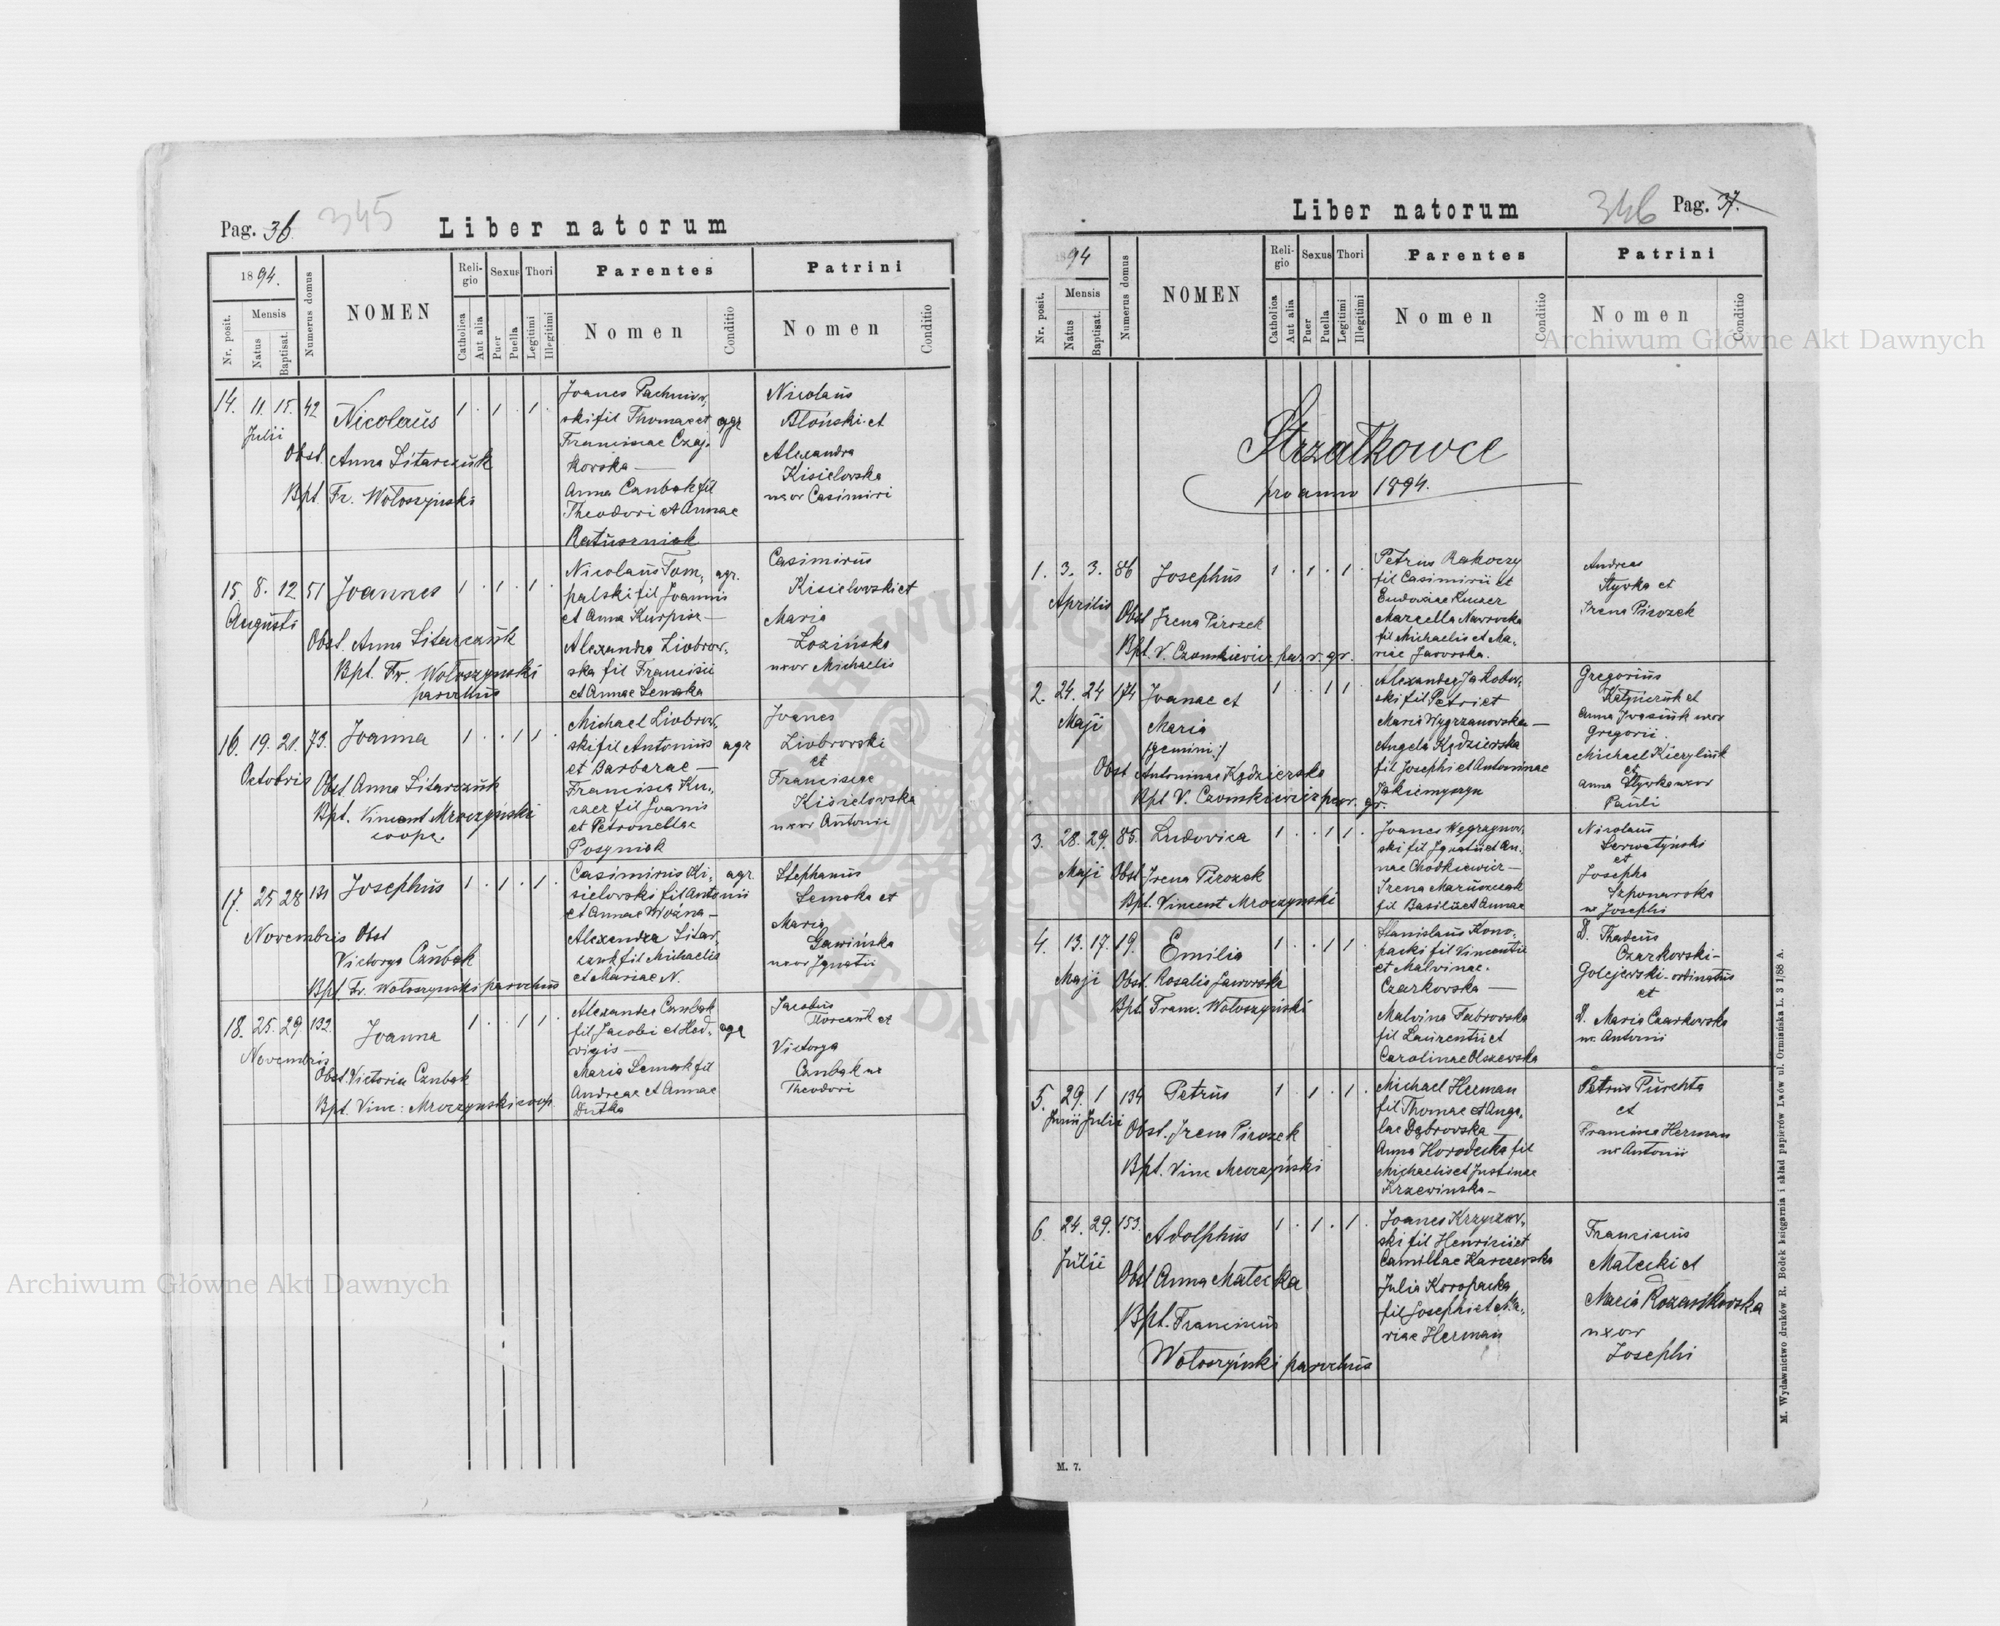 Pag. 36. 345
Liber natorum
1894.
Mensis
Nr. posit.
Natus
Baptisat.
Numerus domus
NOMEN
Religio
Catholica
Aut alia
Sexus
Puer
Puella
Thori
Legitimi
Illegitimi
Parentes
Nomen
Conditio
Patrini
Nomen
Conditio
14. 11. 15. 42 Nicolaus 1 . 1 . 1 .
Julii
Obst. Anna Litarczuk
Bpt. Fr. Wołoszyński
Joanes Pachniow,
ski fil Thomae et agr
Franciscae Czaj,
kovska —
Anna Czubak fil
Theodori et Annae
Ratuszniak
Nicolaus
Błoński et
Alexandra
Kisielovska
uxor Casimiri
15. 8. 12. 51 Joannes 1 . 1 . 1 .
Augusti
Obst. Anna Litarczuk
Bpt. Fr. Wołoszynski
parochus
Nicolaus Tom, agr.
palski fil Joannis
et Anna Kurpisz —
Alexandra Liobrow,
ska fil Francisci
et Annae Semska
Casimirus
Kisielovski et
Maria
Łozińska
uxor Michaelis
16. 19. 21. 73. Joanna 1 . . 1 1 .
Octobris
Obst Anna Litarczuk
Bpt. Vincent Mroczyński
coope.
Michael Liobrow,
ski fil Antonius agr
et Barbarae —
Francisca Ku,
szer fil Joanis
et Petronellae
Posyniak
Joanes
Liobrovski
et
Franciscae
Kisielovska
uxor Antonii
17. 25 28 131 Josephus 1 . 1 . 1 .
Novembris Obst
Victorya Czubak
Bpt. Fr. Wołoszynski parochus
Casimirus Ki, agr.
sielovski fil Antonii
et Annae Woźna —
Alexandra Litar,
czuk fil Michaelis
et Mariae N.
Stephanus
Semska et
Maria
Gawińska
uxor Ignatii
18. 25. 29 132. Joanna 1 . . 1 1 .
Novembris
Obst. Victoria Czubak
Bpt. Vinc: Mroczynski coop.
Alexander Czubak
fil Jacobi et Hed, agr
vigis —
Maria Semsk fil
Andreae et Annae
Dutka
Jacobus
et
Victorya
Czubak ux
Theodori
Liber natorum
346 Pag. 37.
1894
Mensis
Nr. posit.
Natus
Baptisat.
Numerus domus
NOMEN
Religio
Catholica
Aut alia
Sexus
Puer
Puella
Thori
Legitimi
Illegitimi
Parentes
Nomen
Conditio
Patrini
Nomen
Conditio
Strzałkowce
pro anno 1894.
1. 3. 3. 86 Josephus 1 . 1 . 1 .
Aprilis
Obst Irena Pirozek
Bpt. V. Czomkiewicz par. r. gr.
Petrus Rakoczy
fil Casimirii et
Eudoxiae Kuszer
Marcella Navrocka
fil Michaelis et Ma,
riae Javorska.
Andreas
Styrka et
Irena Pirozek
2. 24. 24 174 Joanae et 1 . . 1 1
Maji Maria
(gemini:)
Obst Antoninae Kędzierska
Bpt V. Czomkiewicz par. gr.
Alexander Jakobow,
ski fil Petri et
Maria Wygrzanovska —
Angela Kędzierska
fil Josephi et Antoninae
Jakiemyszyn
Gregorius
et
Anna uxor
Gregorii.
Michael
et
Anna Styrka uxor
Pauli
3. 28. 29. 85. Ludovica 1 . . 1 1 .
Maji Obst Irena Pirozek
Bpt. Vincent Mroczynski
Joanes Węgrzynow,
ski fil Ignatii et An,
nae Chodkiewicz —
Irena Maruszczak
fil Basilii et Annae
Nicolaus
Serwatyński
et
Josepha
Szponarska
ux Josephi
4. 13. 17. 19. Emilia 1 . . 1 1 .
Maji Obst. Rosalia Javorska
Bpt. Franc. Wołoszyński
Stanislaus Kono,
packi fil Vincentii
et Malvinae.
Czarkovska —
Malvina Dabrovska
fil Laurentii et
Carolinae Olszevska
D. Thadeus
Czarkovski —
Golejewski - ordinatus
et
D. Maria Czarkovska
ux Antoni
5. 29. 1 134 Petrus 1 . 1 . 1 .
Junii Julii
Obst. Irena Pirozek
Bpt. Vinc Mroczyński
Michael Herman
fil Thomae et Ange,
lae Dąbrovska —
Anna Horodecka fil
Michaelis et Justinae
Krzewinska —
Petrus Purchta
et
Francisca Herman
ux Antonii
6. 24. 29. 153. Adolphus 1 . 1 . 1 .
Julii
Obst Anna Małecka
Bpt. Franciscus
Wołoszyński parochus
Joanes Krzyczow,
ski fil Henrici et
Camillae Karczevska
Julia Koropacka
fil Josephi et Ma,
riae Herman
Franciscus
Małecki et
Maria Rozankovska
uxor
Josephi
M. 7.
M. Wydawnictwo druków R. Bodek księgarnia i skład papierów Lwów ul. Ormiańska L. 3 188 A.
Archiwum Główne Akt Dawnych
Archiwum Główne Akt Dawnych